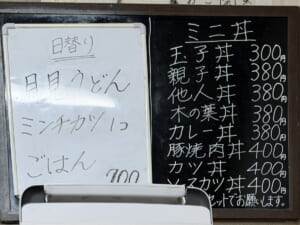 日替り
月見うどん
ミンチカツ 1コ
ごはん
700
ミニ丼
玉子丼 300円
親子丼 380円
他人丼 380円
木の葉丼 380円
カレー丼 380円
豚焼肉丼 400円
カツ丼 400円
ソースカツ丼 400円
セットでお願します。